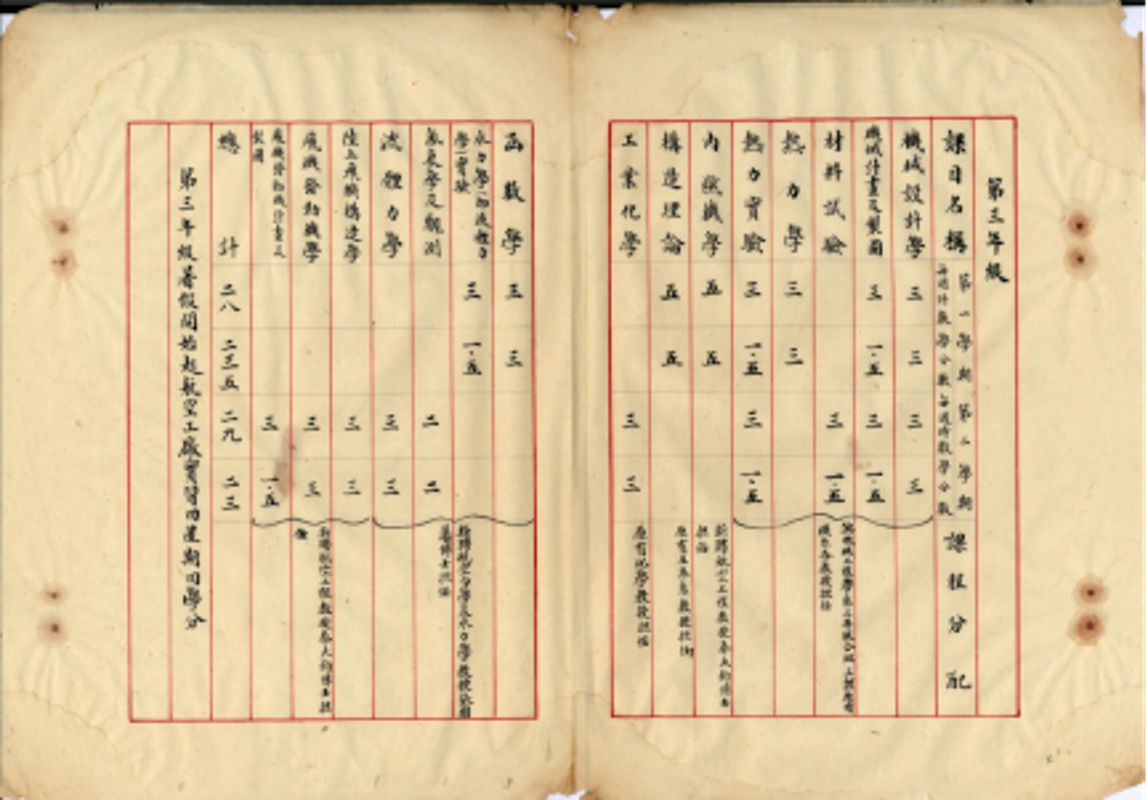 第三年級
課目名稱 第一學期 每週時數 學分數 第二學期 每週時數 學分數 課程分配
機械設計學 三 三 三 三
機械計畫及製圖 三 一·五 三 一·五
材料試驗 三 一·五
熱力學 三 三
熱力實驗 三 一·五 三 一·五
內燃機學 五 五
構造理論 五 五
工業化學 三 三
機械工程學系三年級合班上課原有機系各教授担任
新聘航空工程教授秦大鈞博士担任
原有土木系教授担任
原有化學教授担任
函數學 三 三
水力學(即流體力學)實驗 三 一·五
氣象學及觀測 二 二
流體力學 三 三
陸上飛機構造學 三 三
飛機發動機學 三 三
飛機發動機計畫及製圖 三 一·五
總計 二八 二三五 二九 二三
新聘航空力學及水力學教授
博士担任
新聘航空工程教授秦大鈞博士担任
第三年級暑假開始赴航空工廠實習四星期四學分